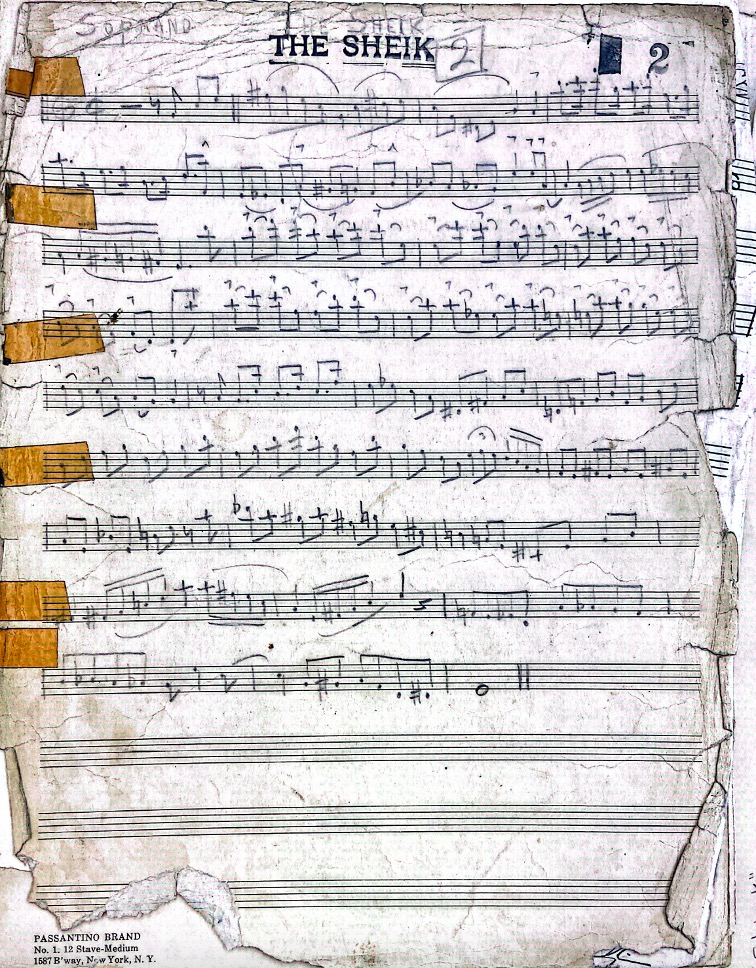 SOPRANO THE SHEIK
THE SHEIK 2 2
PASSANTINO BRAND
No. 1. 12 Stave-Medium
1587 B'way, New York, N. Y.